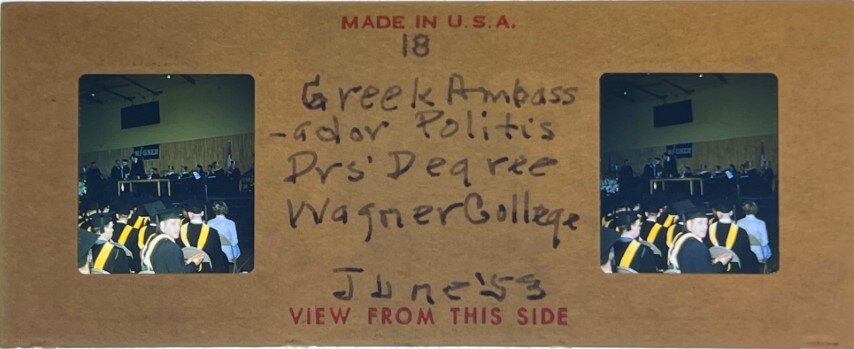 MADE IN U.S.A.
18
Greek Ambass
-ador Politis
Drs' Degree
Wagner College
June '53
VIEW FROM THIS SIDE
WAGNER